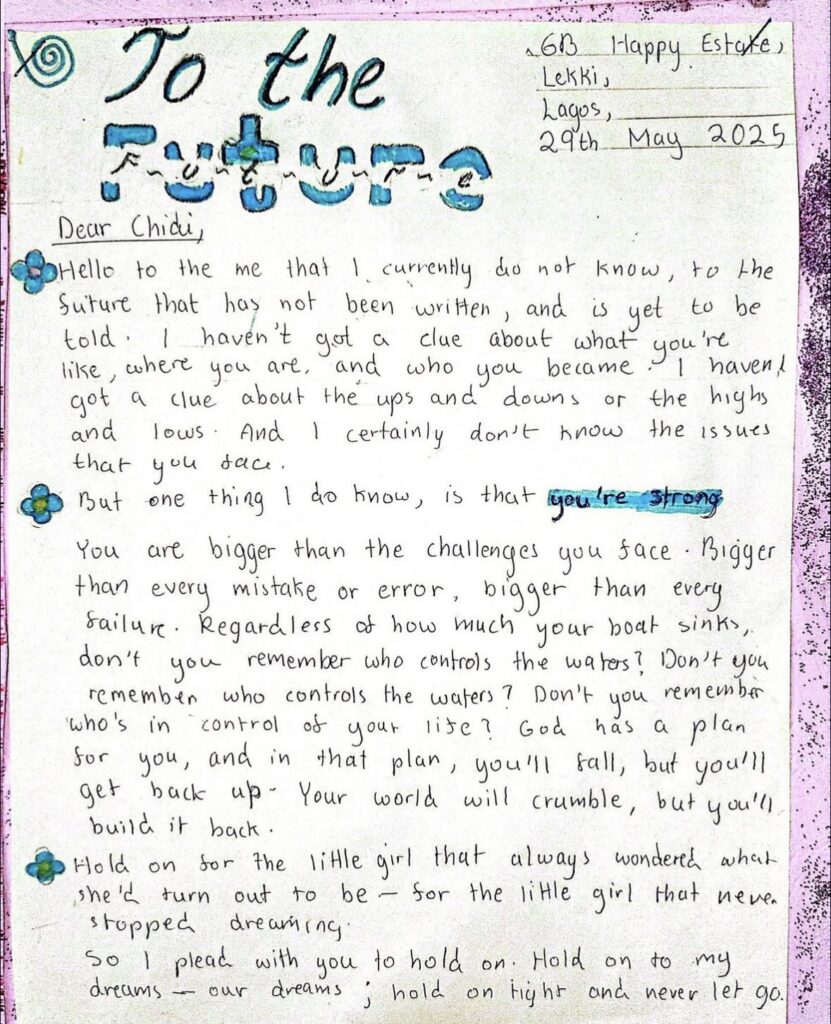 To the
Future
6B Happy Estate,
Lekki,
Lagos,
29th May 2025
Dear Chidi,
Hello to the me that I currently do not know, to the
future that has not been written, and is yet to be
told. I haven't got a clue about what you're
like, where you are, and who you became. I haven't
got a clue about the ups and downs or the highs
and lows. And I certainly don't know the issues
that you face.
But one thing I do know, is that you're strong
You are bigger than the challenges you face. Bigger
than every mistake or error, bigger than every
failure. Regardless of how much your boat sinks,
don't you remember who controls the waters? Don't you
remember who controls the waters? Don't you remember
who's in control of your life? God has a plan
for you, and in that plan, you'll fall, but you'll
get back up. Your world will crumble, but you'll
build it back.
Hold on for the little girl that always wondered what
she'd turn out to be – for the little girl that never
stopped dreaming.
So I plead with you to hold on. Hold on to my
dreams – our dreams; hold on tight and never let go.